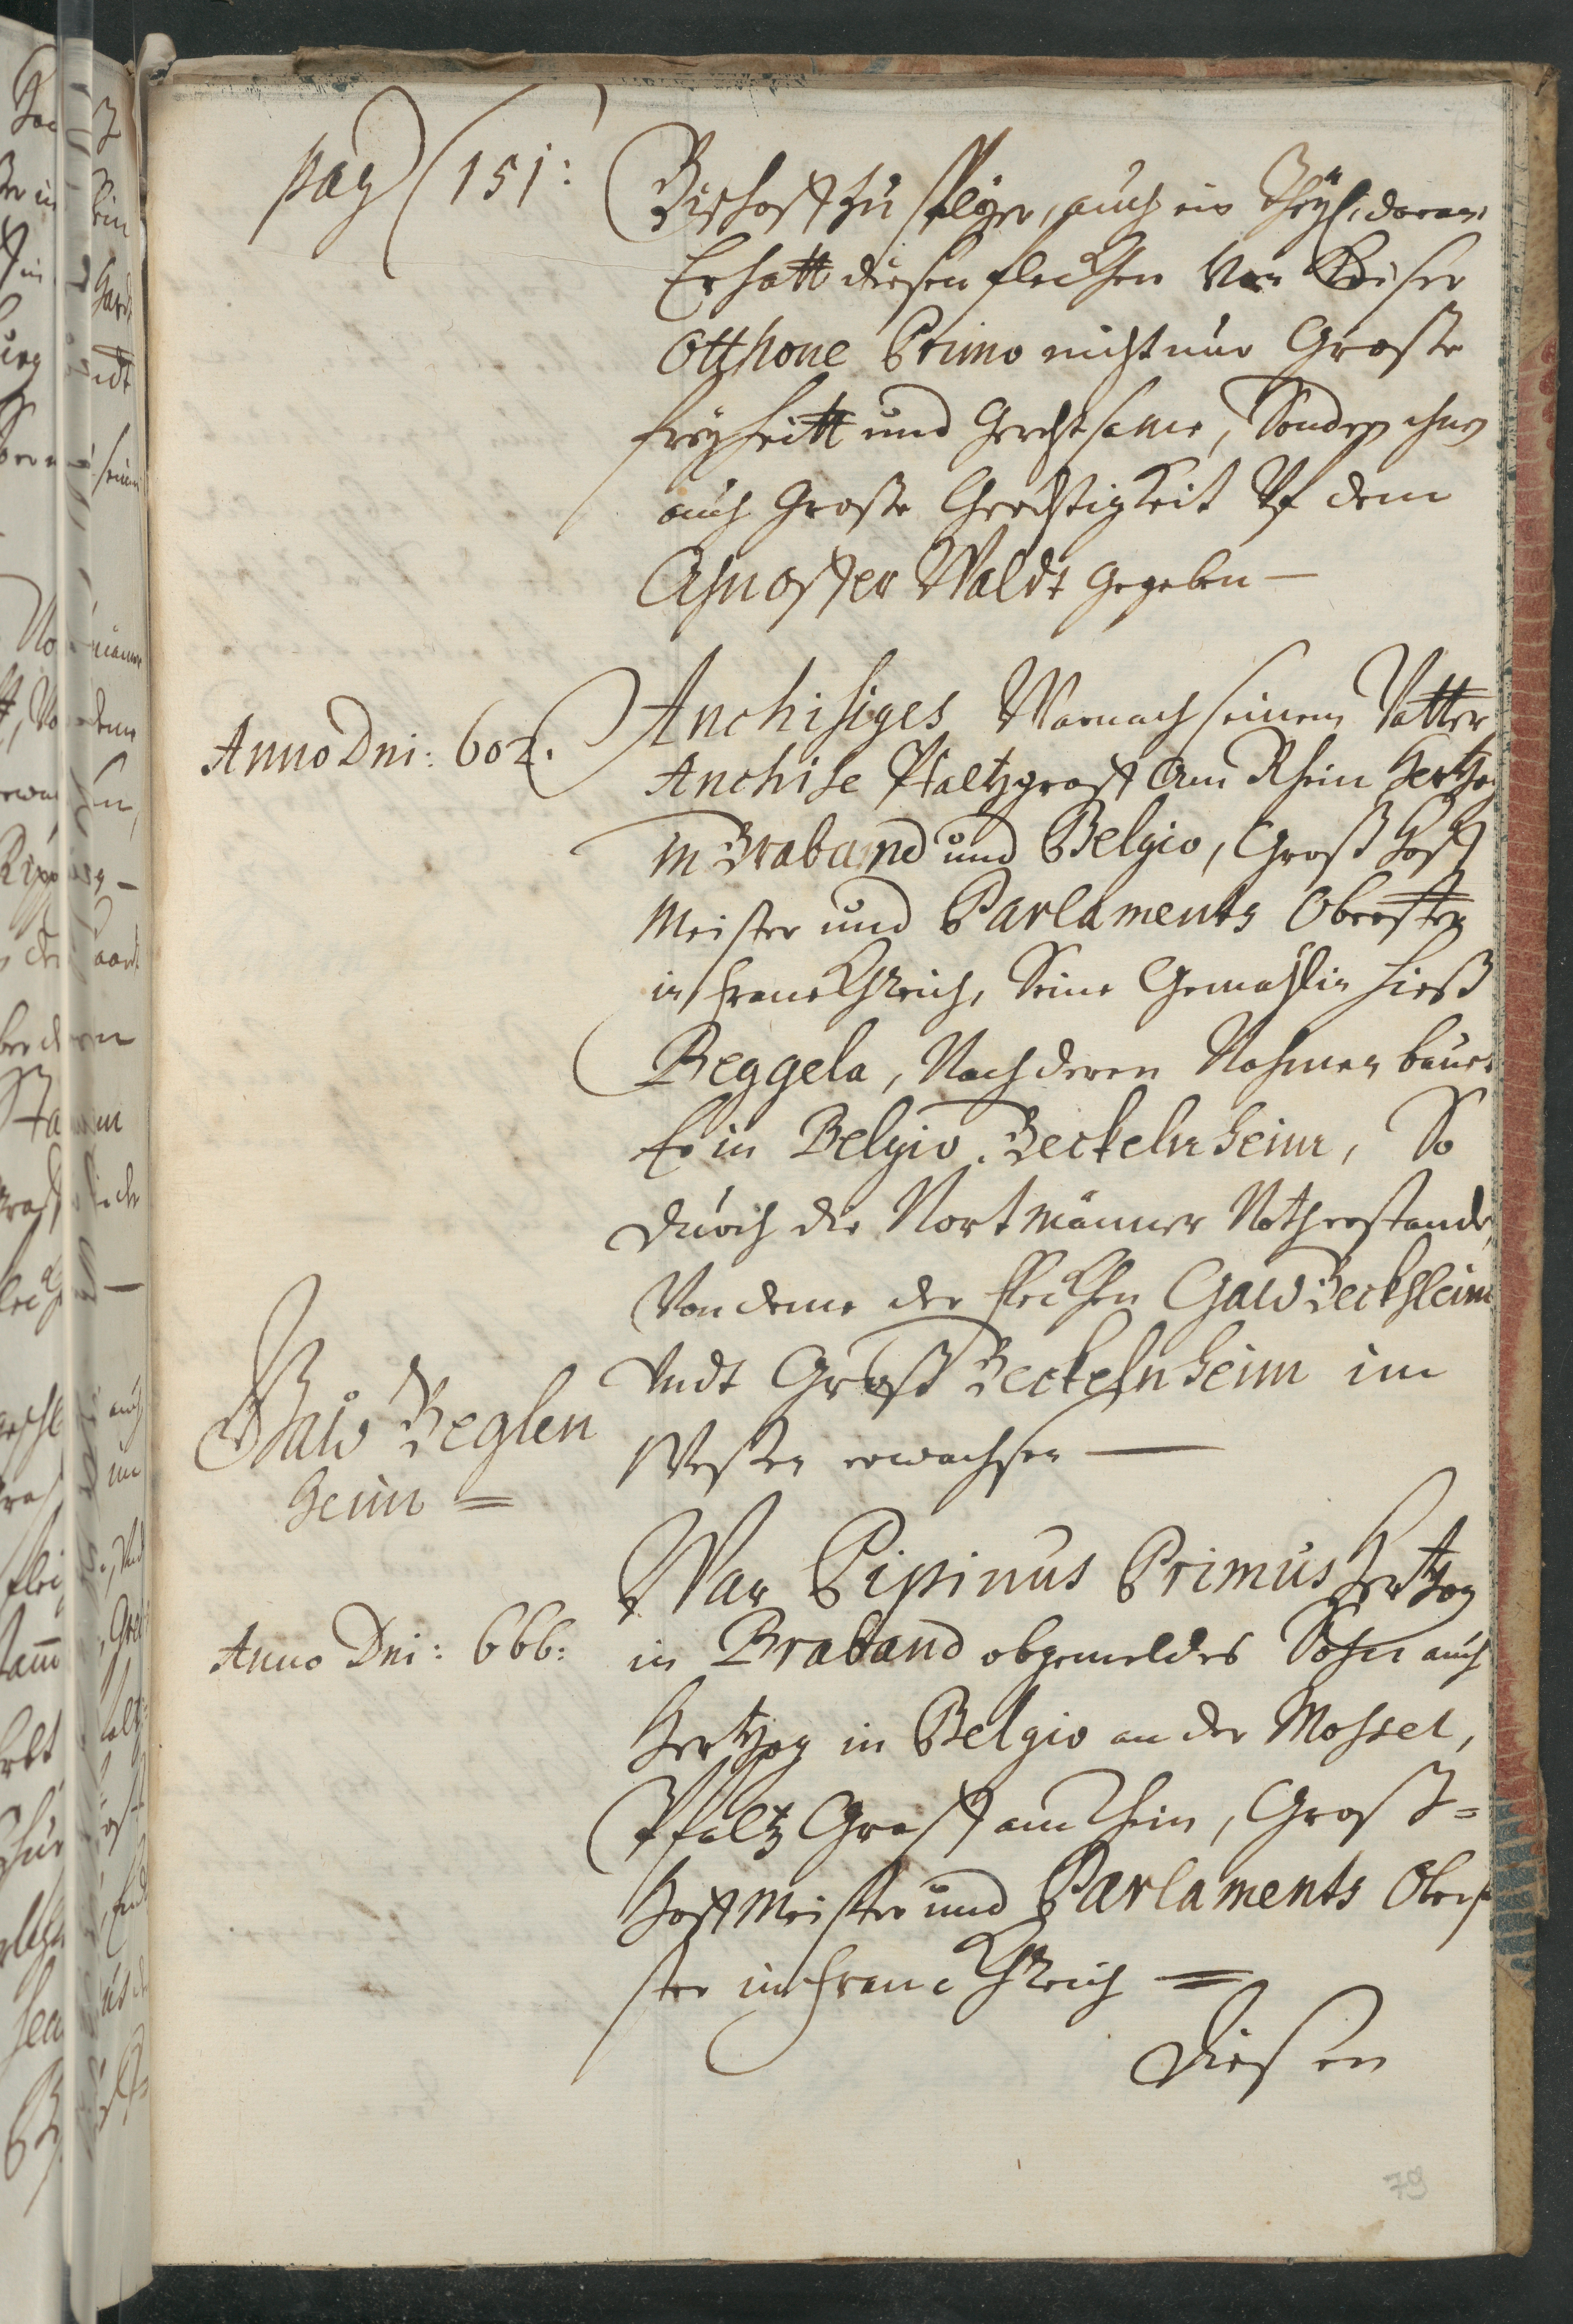 pag 151:
Bischoff zu Speyer, auch ein Theyl, daran
Er hatt diesen flecken Von Keiser
Otthone Primo nicht nur Große
freyheitt und Gerechtsame, Sondern ihm
auch Große Gerechtigkeit Uf dem
Waldt gegeben —
Anno Dni: 602.
Anchisiges War nach seinem Vatter
Anchise Pfaltzgraff Am Rhein Hertzog
in Braband und Belgio, Groß Hoff
Meister und Parlaments Obrister
in Franckhreich, Seine Gemahlin hieß
Beggela, Nach deren Nahmen bauet
Er in Belgio Beckelnheim, So
durch die Nortmänner
Von deme der flecken Gaw Beckhleim
Undt Groß Beckelnheim im
Westen erwachsen —
Gaw Beglen
heim =
Anno Dni: 666:
War Pipinus Primus Hertzog
in Braband obgemeldes Sohn auch
Hertzog in Belgio an der Mossel,
Pfaltz Graff am Rhein, Groß=
Hoff Meister und Parlaments Obri
ster in Franckhreich =
Diesen
79